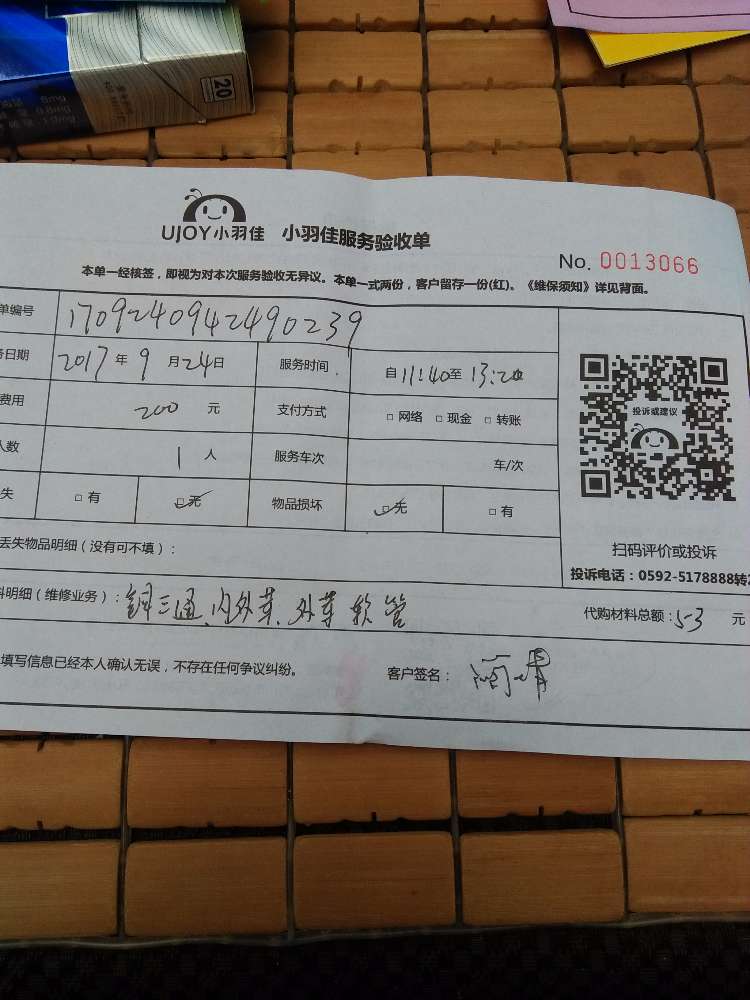 20
8mg
UJOY小羽佳 小羽佳服务验收单
No. 0013066
本单一经核签，即视为对本次服务验收无异议。本单一式两份，客户留存一份(红)。《维保须知》详见背面。
单编号 1709240942490239
务日期 2017 年 9 月 24 日 服务时间 自 11:40 至 13:20
费用 200 元 支付方式 □ 网络 □ 现金 □ 转账
人数 1 人 服务车次 车/次
失 □ 有 □ 无 物品损坏 □ 无 □ 有
投诉或建议
扫码评价或投诉
投诉电话：0592-5178888转2
丢失物品明细（没有可不填）：
料明细（维修业务）：铜三通、内外草、外草软管 代购材料总额：53 元
填写信息已经本人确认无误，不存在任何争议纠纷。 客户签名：